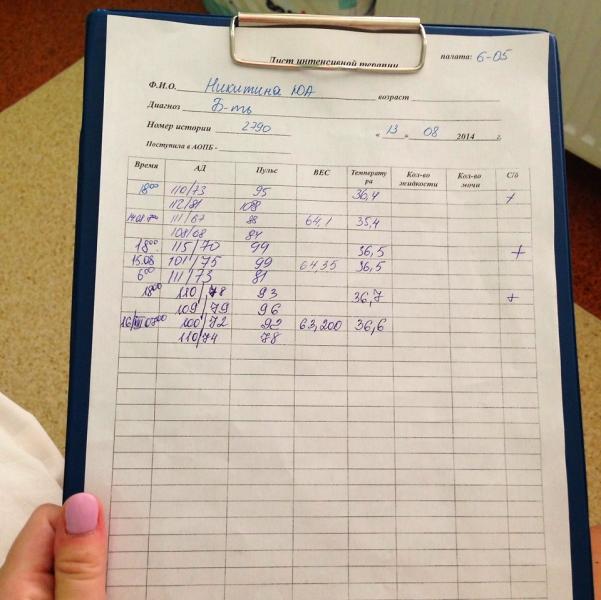 Лист интенсивной терапии
палата: 6-05
Ф.И.О. Никитина ЮА возраст
Диагноз Б-ть
Номер истории 2790 « 13 » 08 2014 г.
Поступила в АОПБ -
Время АД Пульс ВЕС Температура Кол-во жидкости Кол-во мочи С/б
18⁰⁰ 110/73 95 36,4 +
112/81 108
111/67 88 64,1 35,4
108/68 84
18⁰⁰ 115/70 99 36,5 +
15.08 101/75 99 64,35 36,5
6⁰⁰ 111/73 81
18⁰⁰ 110/78 93 36,7 +
109/79 96
16/VIII 07⁰⁰ 100/72 92 63,200 36,6
110/74 78